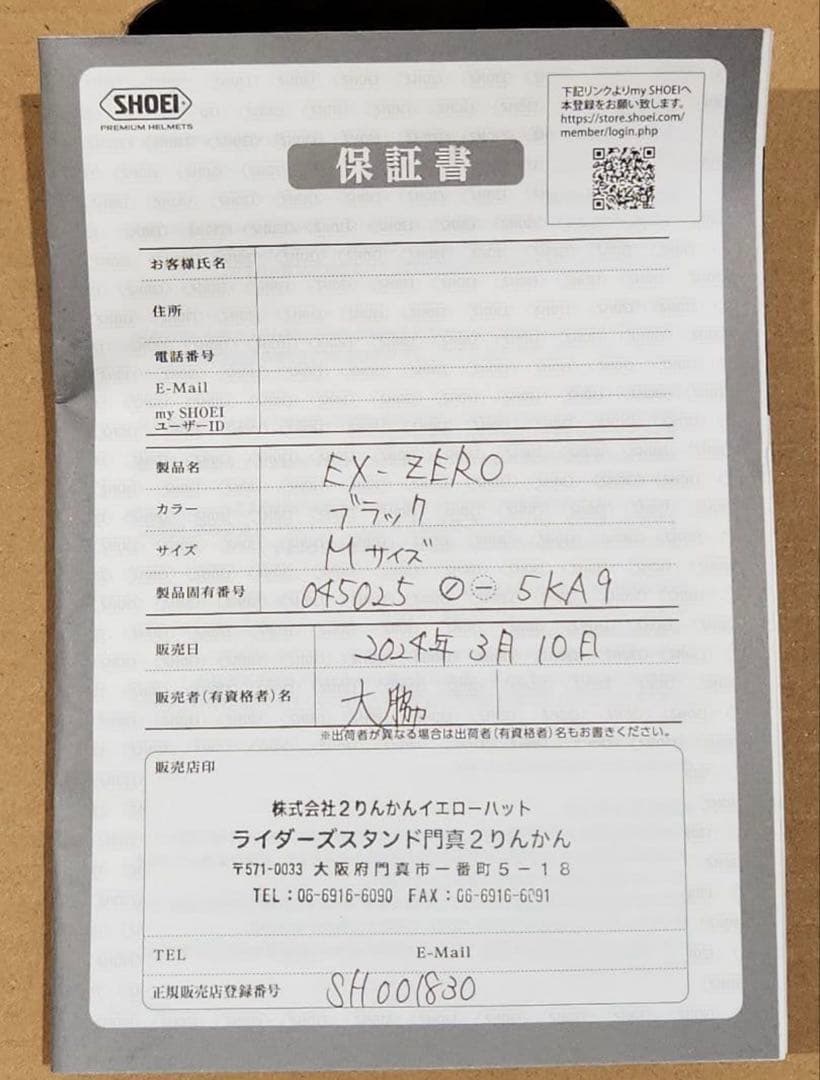 SHOEI
PREMIUM HELMETS
下記リンクよりmy SHOEIへ
本登録をお願い致します。
https://store.shoei.com/
member/login.php
保証書
お客様氏名
住所
電話番号
E-Mail
my SHOEI
ユーザーID
製品名 EX-ZERO
カラー ブラック
サイズ Mサイズ
製品固有番号 045025 ⊘ ㊀ 5KA9
販売日 2024年 3月 10日
販売者(有資格者)名 大脇
※出荷者が異なる場合は出荷者(有資格者)名もお書きください。
販売店印
株式会社2りんかんイエローハット
ライダーズスタンド門真2りんかん
〒571-0033 大阪府門真市一番町5-18
TEL:06-6916-6090 FAX:06-6916-6091
TEL E-Mail
正規販売店登録番号 SH001830